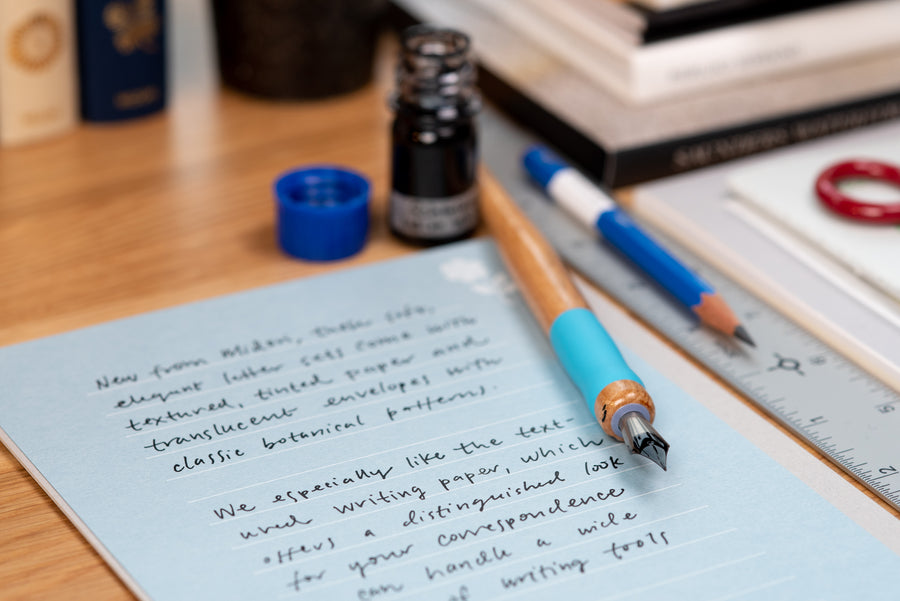 New from Midori, these soft,
elegant letter sets come with
textured, tinted paper and
translucent envelopes with
classic botanical patterns.
We especially like the text-
ured writing paper, which
offers a distinguished look
for your correspondence
can handle a wide
of writing tools